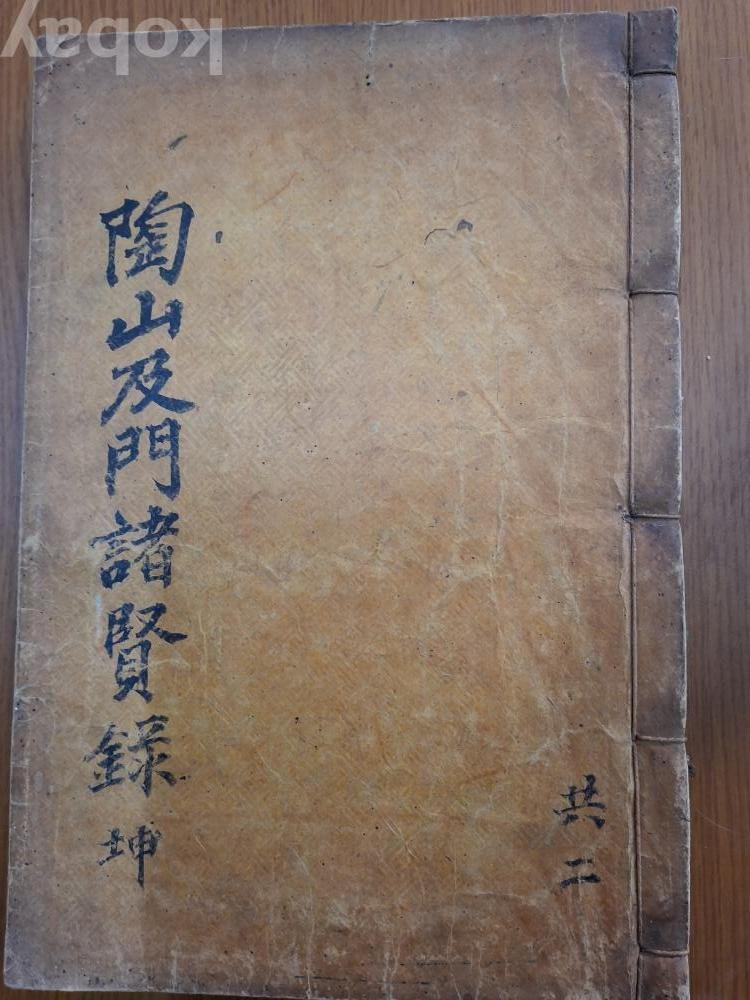 陶山及門諸賢錄 坤
共二
kobay